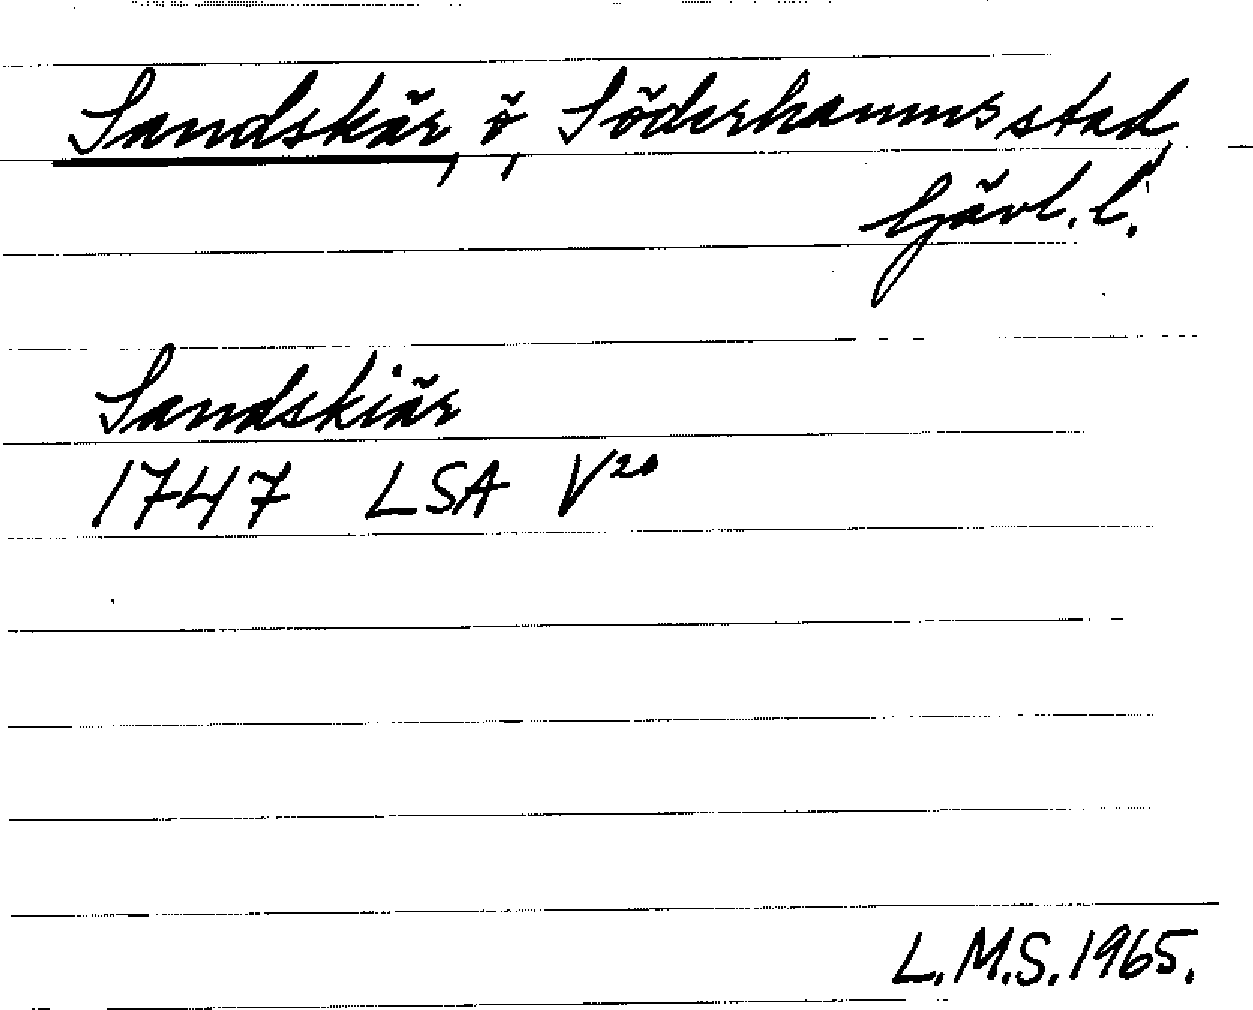 Sandskär, ö, Söderhamns stad,
Gävl. l.
Sandskiär
1747 LSA V²⁰
L.M.S. 1965.